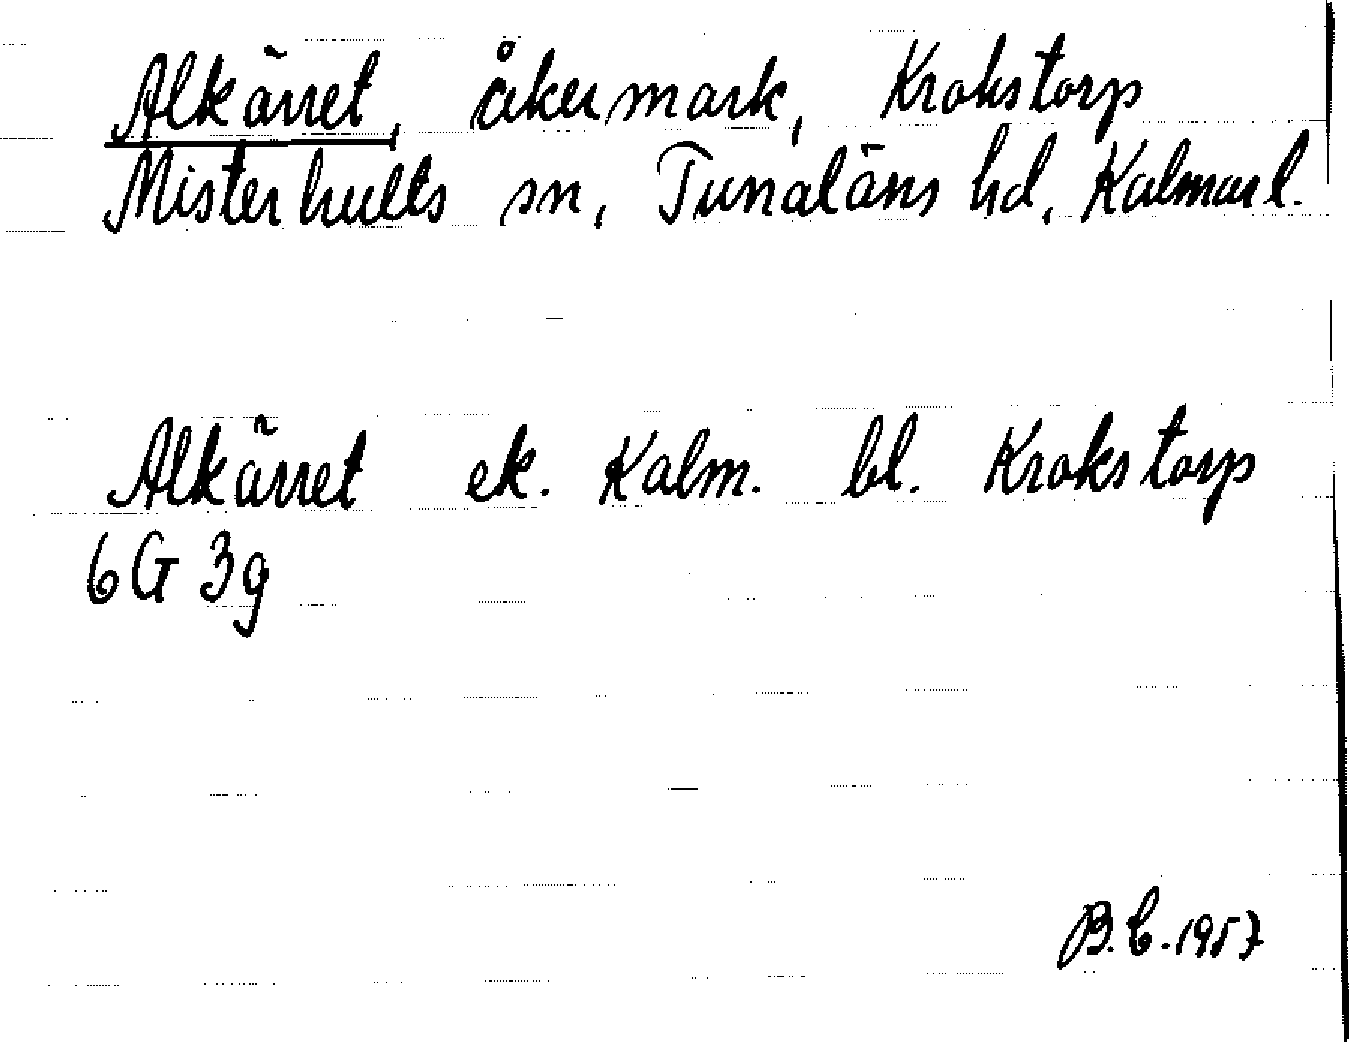 Alkärret, åkermark, Krokstorp
Misterhults sn, Tunaläns hd, Kalmar l.
Alkärret ek. Kalm. bl. Krokstorp
6G 3g
B.C. 1957